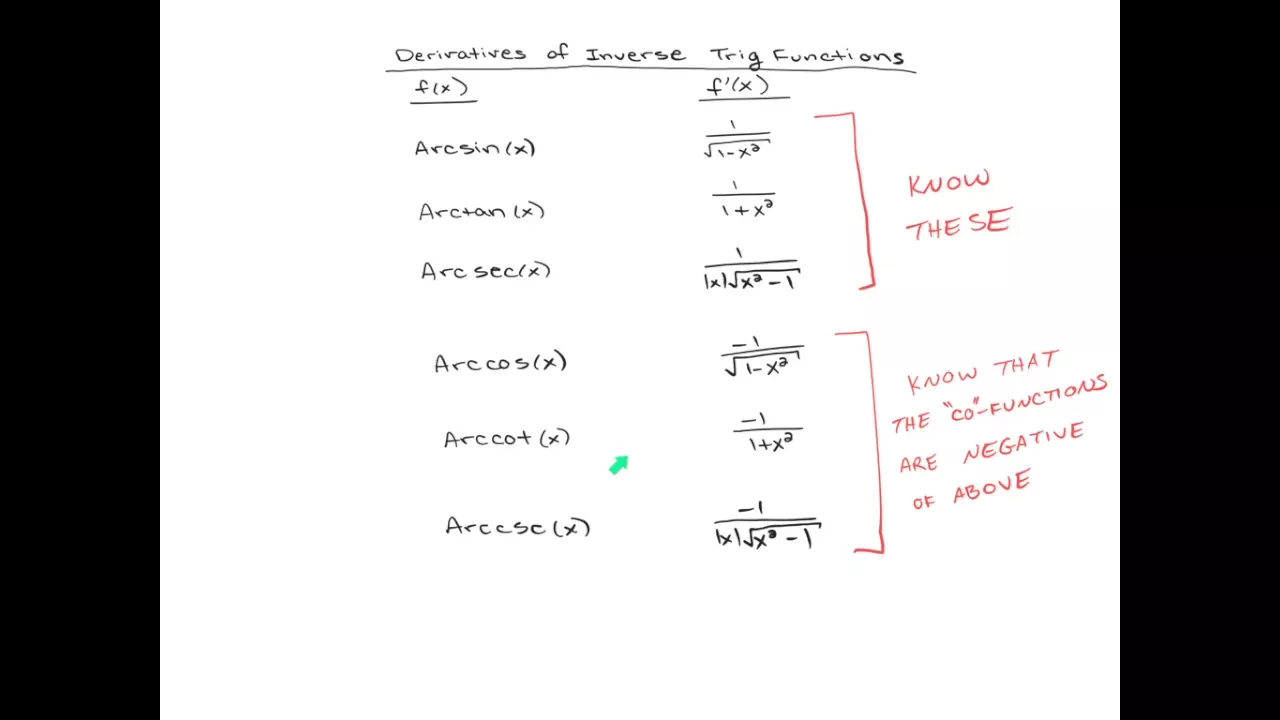 Derivatives of Inverse Trig Functions
f(x) f'(x)
Arcsin(x) 1/√(1-x²)
Arctan(x) 1/(1+x²)
Arcsec(x) 1/(|x|√(x²-1))
KNOW
THESE
Arccos(x) -1/√(1-x²)
Arccot(x) -1/(1+x²)
Arccsc(x) -1/(|x|√(x²-1))
KNOW THAT
THE "CO"-FUNCTIONS
ARE NEGATIVE
OF ABOVE